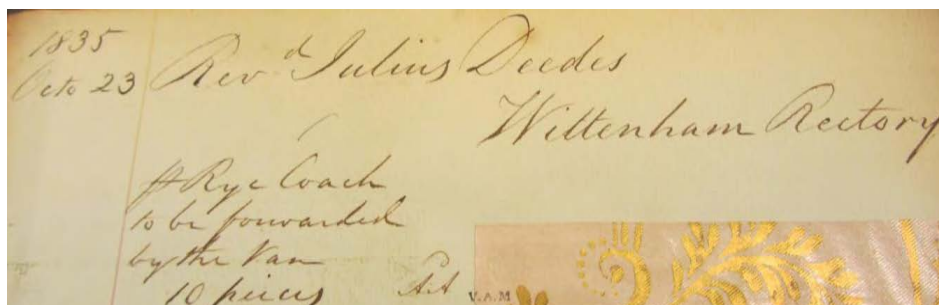 1835
Octo 23 Revd Julius Deedes
Wittenham Rectory
Rye Coach
to be forwarded
by the Van
10 pieces
V.A.M